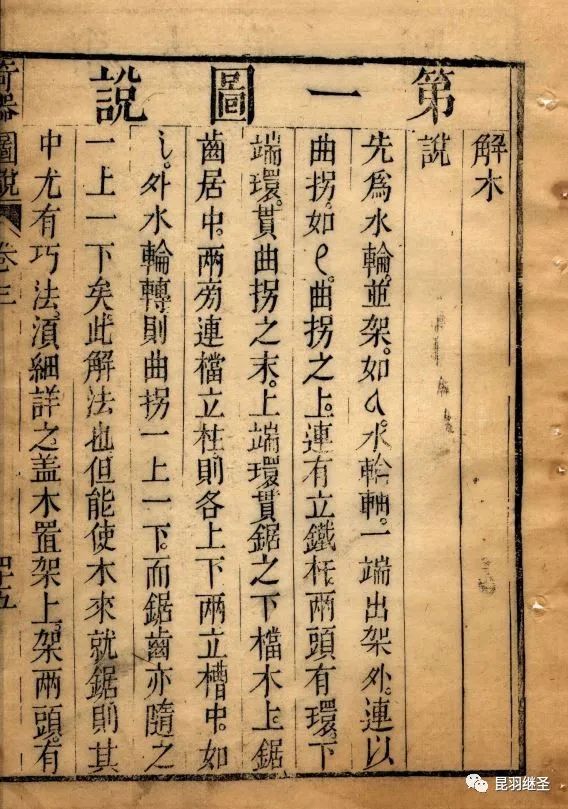 第一圖說
解木
說
先爲水輪並架。如a。水輪軸。一端出架外。連以
曲拐。如e。曲拐之上。連有立鐵杆。兩頭有環。下
端環。貫曲拐之末。上端環貫鋸之下檔木上。鋸
齒居中。兩旁連檔立柱則各上下兩立槽中。如
i。外水輪轉則曲拐一上一下。而鋸齒亦隨之
一上一下矣。此解法也但能使木來就鋸則其
中尤有巧法。湏細詳之盖木置架上。架兩頭。有
奇器圖說 卷三 四十五
昆羽继圣